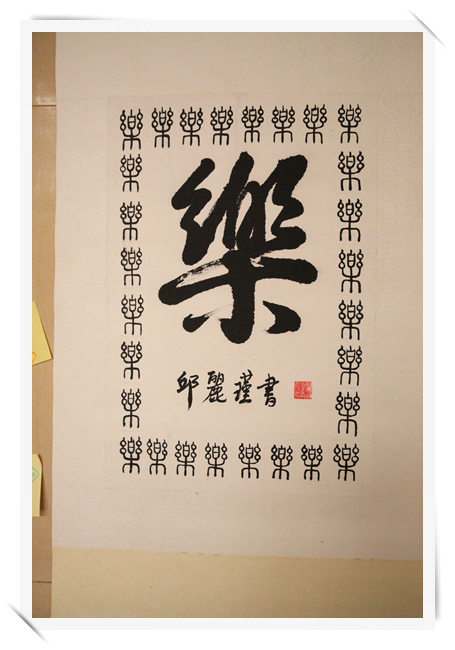 樂樂樂樂樂樂樂樂
樂 樂
樂 樂
樂 樂
樂 樂
樂 樂
樂 樂
樂樂樂樂樂樂樂樂
樂
邱麗瑾書